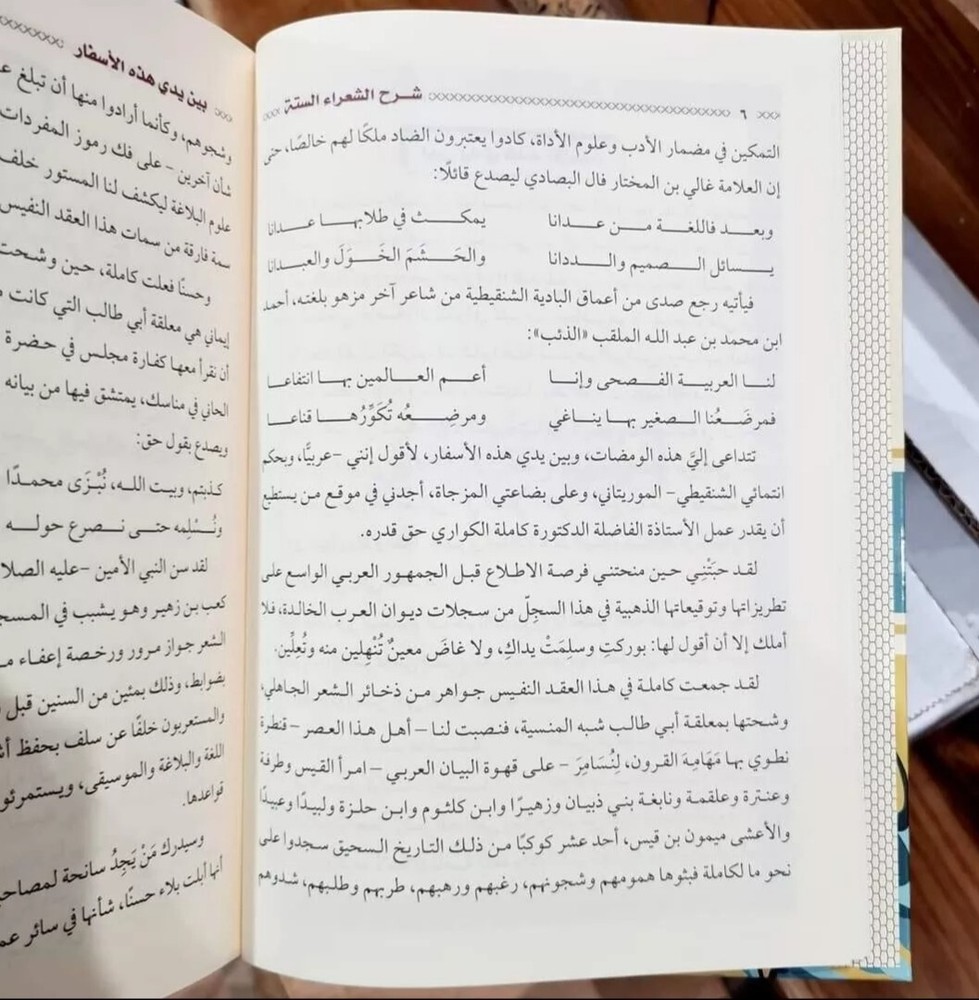 ٦ شرح الشعراء الستة
التمكين في مضمار الأدب وعلوم الأداة، كادوا يعتبرون الضاد ملكًا لهم خالصًا، حتى
إن العلامة غالي بن المختار فال البصادي ليصدع قائلًا:
وبعد فاللغة من عدانا يمكث في طلابها عدانا
يسائل الصميم والددانا والحَشَمَ الخَوَلَ والعبدانا
فيأتيه رجع صدى من أعماق البادية الشنقيطية من شاعر آخر مزهو بلغته، أحمد
ابن محمد بن عبد الله الملقب «الذئب»:
لنا العربية الفصحى وإنا أعم العالمين بها انتفاعا
فمرضَعُنا الصغير بها يناغي ومرضِعُه تُكَوِّرُها قناعا
تتداعى إليَّ هذه الومضات، وبين يدي هذه الأسفار، لأقول إنني -عربيًّا، وبحكم
انتمائي الشنقيطي- الموريتاني، وعلى بضاعتي المزجاة، أجدني في موقع من يستطيع
أن يقدر عمل الأستاذة الفاضلة الدكتورة كاملة الكواري حق قدره.
لقد حبَتْنِي حين منحتني فرصة الاطلاع قبل الجمهور العربي الواسع على
تطريزاتها وتوقيعاتها الذهبية في هذا السجِلّ من سجلات ديوان العرب الخالدة، فلا
أملك إلا أن أقول لها: بوركتِ وسلِمَتْ يداكِ، ولا غاضَ معينٌ تُنْهِلين منه وتُعِلِّين.
لقد جمعت كاملة في هذا العقد النفيس جواهر من ذخائر الشعر الجاهلي،
وشحتها بمعلقة أبي طالب شبه المنسية، فنصبت لنا – أهل هذا العصر – قنطرة
نطوي بها مَهَامِهَ القرون، لِنُسَامِرَ – على قهوة البيان العربي – امرأ القيس وطرفة
وعنترة وعلقمة ونابغة بني ذبيان وزهيرًا وابن كلثوم وابن حلزة ولبيدًا وعبيدًا
والأعشى ميمون بن قيس، أحد عشر كوكبًا من ذلك التاريخ السحيق سجدوا على
نحو ما لكاملة فبثوها همومهم وشجونهم، رغبهم ورهبهم، طربهم وطلبهم، شدوهم
بين يدي هذه الأسفار
وشجوهم، وكأنما أرادوا منها أن تبلغ
شأن آخرين – على فك رموز المفردات
علوم البلاغة ليكشف لنا المستور خلف
سمة فارقة من سمات هذا العقد النفيس
وحسنًا فعلت كاملة، حين وشحت
إيماني هي معلقة أبي طالب التي كانت
أن نقرأ معها كفارة مجلس في حضرة
الحاني في مناسك، يمتشق فيها من بيانه
ويصدع بقول حق:
كذبتم، وبيت الله، نُبْزَى محمدًا
ونُسْلِمه حتى نصرع حوله
لقد سن النبي الأمين -عليه
كعب بن زهير وهو يشبب في
الشعر جواز مرور ورخصة إعفاء
بضوابط، وذلك بمئين من السنين قبل
والمستعربون خلفًا عن سلف بحفظ
اللغة والبلاغة والموسيقى، ويستمرئون
قواعدها.
وسيدرك مَنْ يَجِدُ سانحة
أنها أبلت بلاء حسنًا، شأنها في سائر